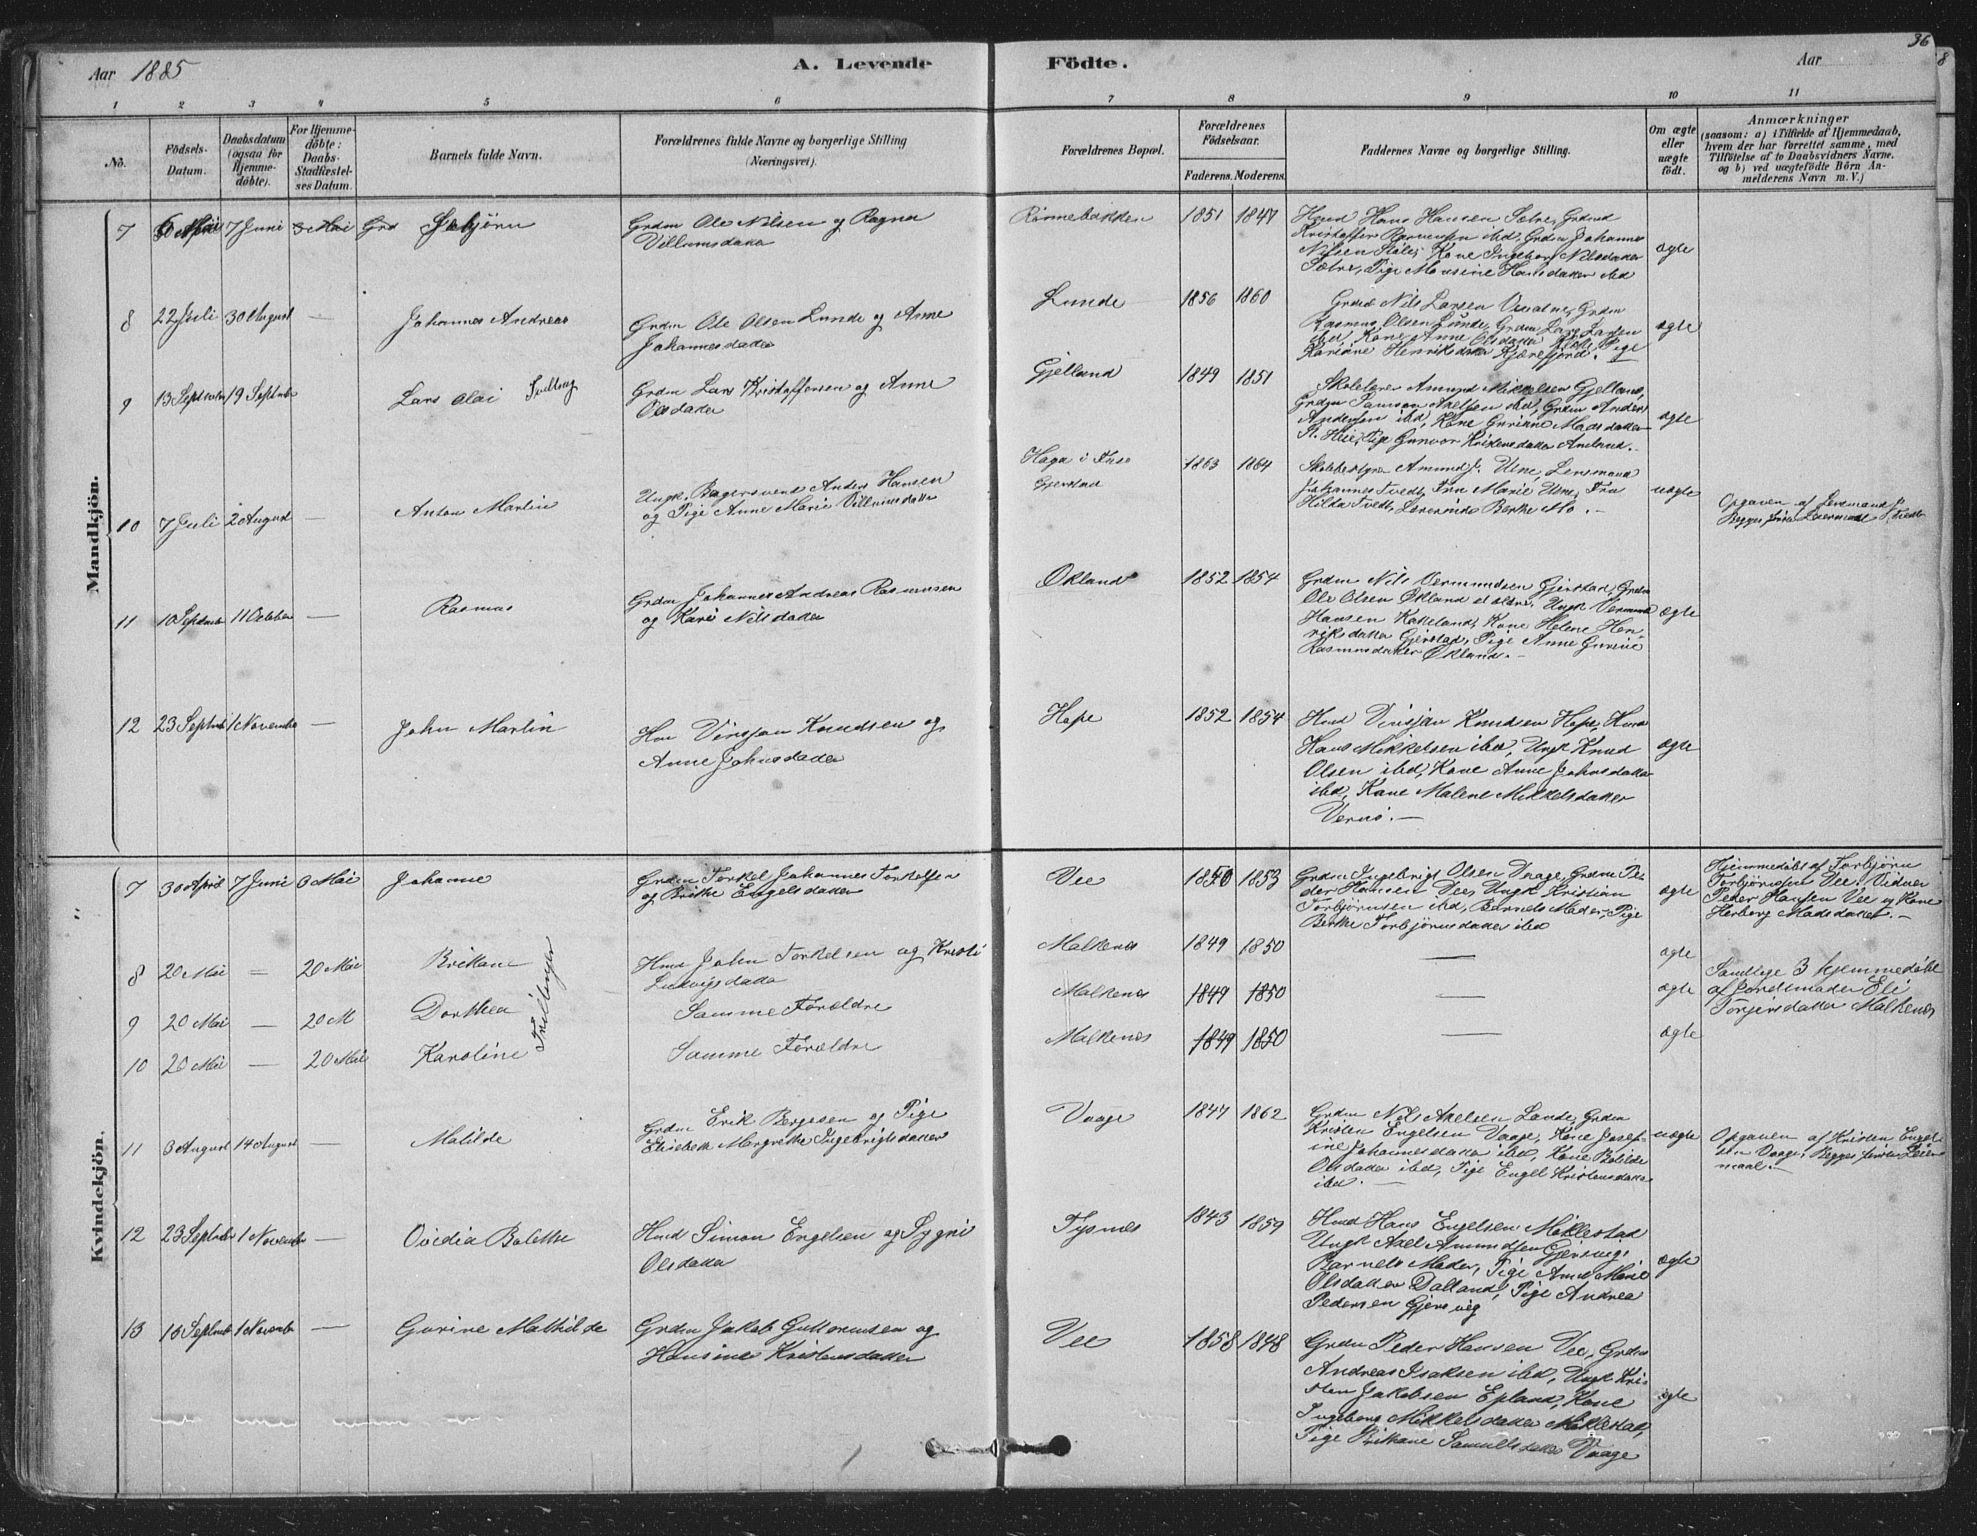 36
Aar 1885
A. Levende
Födte.
Aar
1 2 3 4 5 6 7 8 9 10 11
No.
Födsels-Datum.
Daabsdatum (ogsaa for Hjemme-döbte).
For Hjemme-döbte: Daabs-Stadfæstel-ses Datum.
Barnets fulde Navn.
Forældrenes fulde Navne og borgerlige Stilling (Næringsvei).
Forældrenes Bopæl.
Forældrenes Födselsaar.
Faderens. Moderens.
Faddernes Navne og borgerlige Stilling.
Om ægte eller uægte födt.
Anmærkninger
(saasom: a) i Tilfælde af Hjemmedaab,
hvem der har forrettet samme, med
Tilföielse af to Daabsvidners Navne.
og b) ved uægtefödte Börn An-
melderens Navn m. V.)
Mandkjön.
7 7 Juni
Grdm Ole Nilsen og Ragna
Villumsdatter
1851 1847
Hmd Hans Hansen Sætre, Grdmd
Kristoffer Rasmussen ibd, Grdm Johannes
Nilsen Stöle, Kone Ingeborg Nilsdatter
Sætre, Pige Monsine Hansdatter ibd
ægte
8 22 Juli 30 August — Johannes Andreas
Grdm Ole Olsen Lunde og Anne
Johannesdatter
Lunde 1856 1860
Grdm Nils Larsen
Rasmus Olsen Lunde, Grdm Lars Larsen
ibd, Kone Anne Olsdatter Pige
Henriksdatter
ægte
9 13 September 19 September Lars Olai
Grdm Lars Kristoffersen og Anne
Olsdatter
Gjelland 1849 1851
Skolelærer Amund Mikkelsen Gjelland,
Grdm Samson Axelsen ibd, Grdm Anders
Andersen ibd, Kone Gurine Madsdatter
Pige Gunvor Kristensdatter
ægte
10 7 Juli 2 August — Anton Martin
Ungk. Bagersvend Anders Hansen
og Pige Anne Marie Villumsdatter
Haga i Fuse
Gjerstad
1863 1864
Skolebestyrer Amund J. Utne, Lensmand
Johannes Tvedt, Fru Marie Utne, Fru
Hilda Tvedt, Lærerinde Berthe Mo. —
uægte
Opgaven af Lensmand J. Tvedt
Begges förste Leiermaal
11 10 September 11 October — Rasmus
Grdm Johannes Andreas Rasmussen
og Kari Nilsdatter
Økland 1852 1854
Grdm Nils Vermundsen Gjerstad, Grdm
Ole Olsen Økland et ældre, Ungk Vermund
Hansen Kakeland, Kone Helene Hen-
riksdatter Gjerstad, Pige Anne Gurine
Rasmusdatter Økland. —
ægte
12 23 September 1 November — John Martin
Hmd Vinsjan Knudsen og
Anne Johnsdatter
Hope 1852 1854
Hmd Vinsjan Knudsen Hope, Hmd
Hans Mikkelsen ibd, Ungk Knud
Olsen ibd, Kone Anne Johnsdatter
ibd, Kone Malene Mikkelsdatter
Vernö. —
ægte
Kvindekjön.
7 30 April 7 Juni 3 Mai Johanne
Grdm Torkel Johannes Torkelsen
og Brithe Engelsdatter
Vee 1850 1853
Grdm Ingebrigt Olsen Vaage, Grdm Pe-
der Hansen Vee, Ungk Kristian
Torbjörnsen ibd, Barnets Moder, Pige
Berthe Torbjörnsdatter ibd
ægte
Hjemmedöbt af Torbjörn
Torbjörnsen Vee. Vidner
Peder Hansen Vee og Kone
Herborg Madsdatter. —
8 20 Mai — 20 Mai Brithane
Trillinger
Hmd John Torkelsen og Kristi
Ludvigsdatter
Malkenes 1849 1850 — ægte
Samtlige 3 hjemmedöbt
af Jordemoder Eli
Torjersdatter Malkenes
9 20 Mai — 20 M Dorthea Samme Forældre
Malkenes 1849 1850 — ægte
10 20 Mai — 20 Mai Karoline Samme Forældre
Malkenes 1849 1850 — ægte
11 3 August 14 August — Matilde
Grdm Erik Bergesen og Pige
Elisabeth Margrethe Ingebrigtsdatter
Vaage 1847 1862
Grdm Nils Axelsen Lande, Grdm
Kristen Engelsen Vaage, Kone Josef-
ine Johannesdatter ibd, Kone Botilde
Olsdatter ibd, Pige Engel Kristensdatter
ibd. —
uægte
Opgaven af Kristen Engel-
sen Vaage, Begges förste Leier-
maal. —
12 23 September 1 November — Ovidia Bolette
Hmd Simon Engelsen og Sygni
Olsdatter
Tysnes 1843 1859
Hmd Hans Engelsen Möklestad
Ungk Axel Amundsen Gjersvig,
Barnets Moder, Pige Anne Marie
Olsdatter Dalland, Pige Andrea
Pedersen Gjersvig
ægte
13 15 September 1 November — Gurine Mathilde
Grdm Jakob Guttormsen og
Hansine Kristensdatter
Vee 1858 1848
Grdm Peder Hansen Vee, Grdm
Andreas Isaksen ibd, Ungk Kri-
sten Jakobsen Epland, Kone
Ingeborg Mikkelsdatter Möklestad,
Pige Brithane Samuelsdatter Vaage
ægte